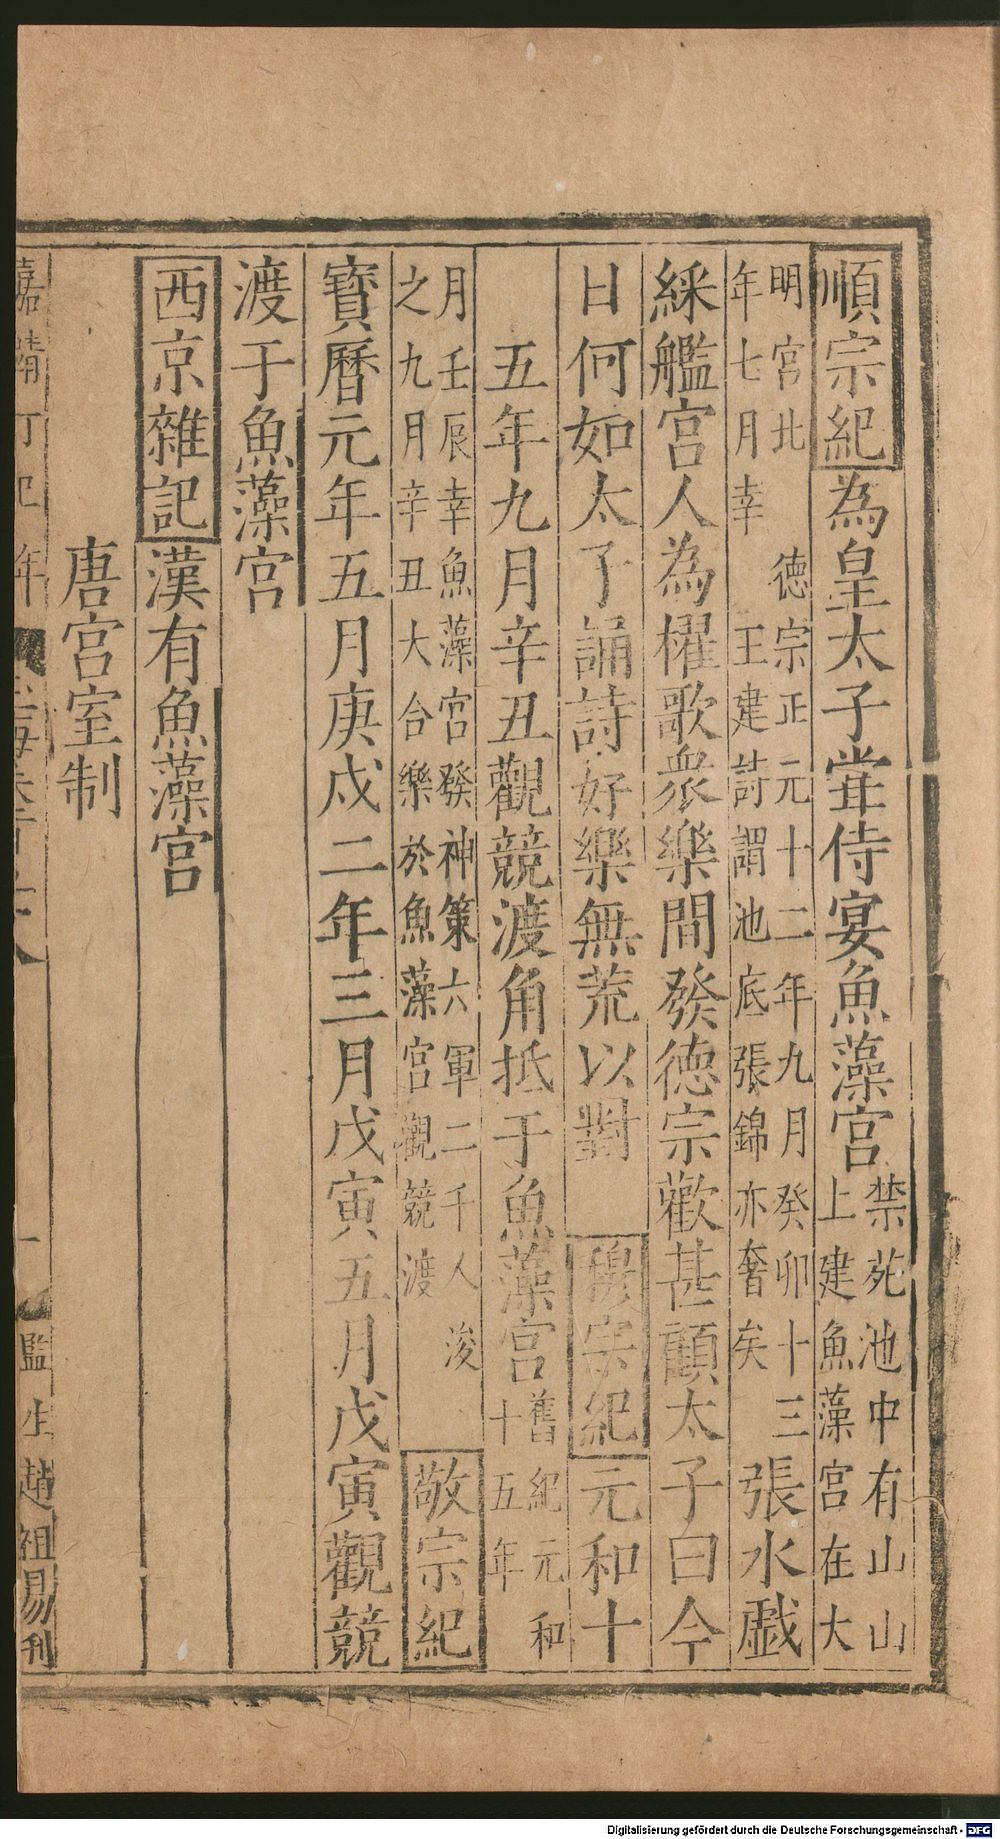 順宗紀為皇太子嘗侍宴魚藻宮禁苑池中有山山上建魚藻宮在大
明宮北 德宗正元十二年九月癸卯十三年七月幸 王建詩謂池底張錦亦奢矣張水戱
綵艦宮人為櫂歌衆樂間發德宗歡甚顧太子曰今
日何如太子誦詩好樂無荒以對 穆宗紀元和十
五年九月辛丑觀競渡角抵于魚藻宮舊紀元和十五年
月壬辰幸魚藻宮發神策六軍二千人浚之九月辛丑大合樂於魚藻宮觀競渡 敬宗紀
寶曆元年五月庚戌二年三月戊寅五月戊寅觀競
渡于魚藻宮
西京雜記漢有魚藻宮
唐宮室制
嘉靖丁巳年
監生趙祖易刊
Digitalisierung gefördert durch die Deutsche Forschungsgemeinschaft - DFG